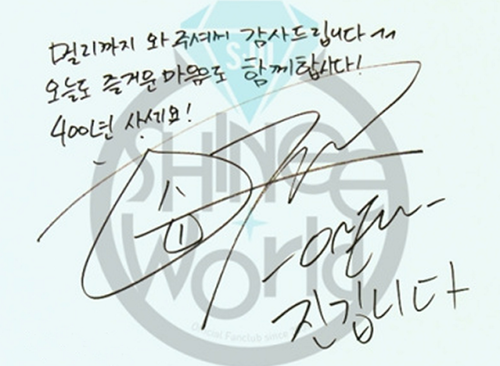 멀리까지 와 주셔서 감사드립니다 ^^
오늘도 즐거운 마음으로 함께합시다!
400년 사세요!
SHINee
World
진깁니다
Official Fanclub since